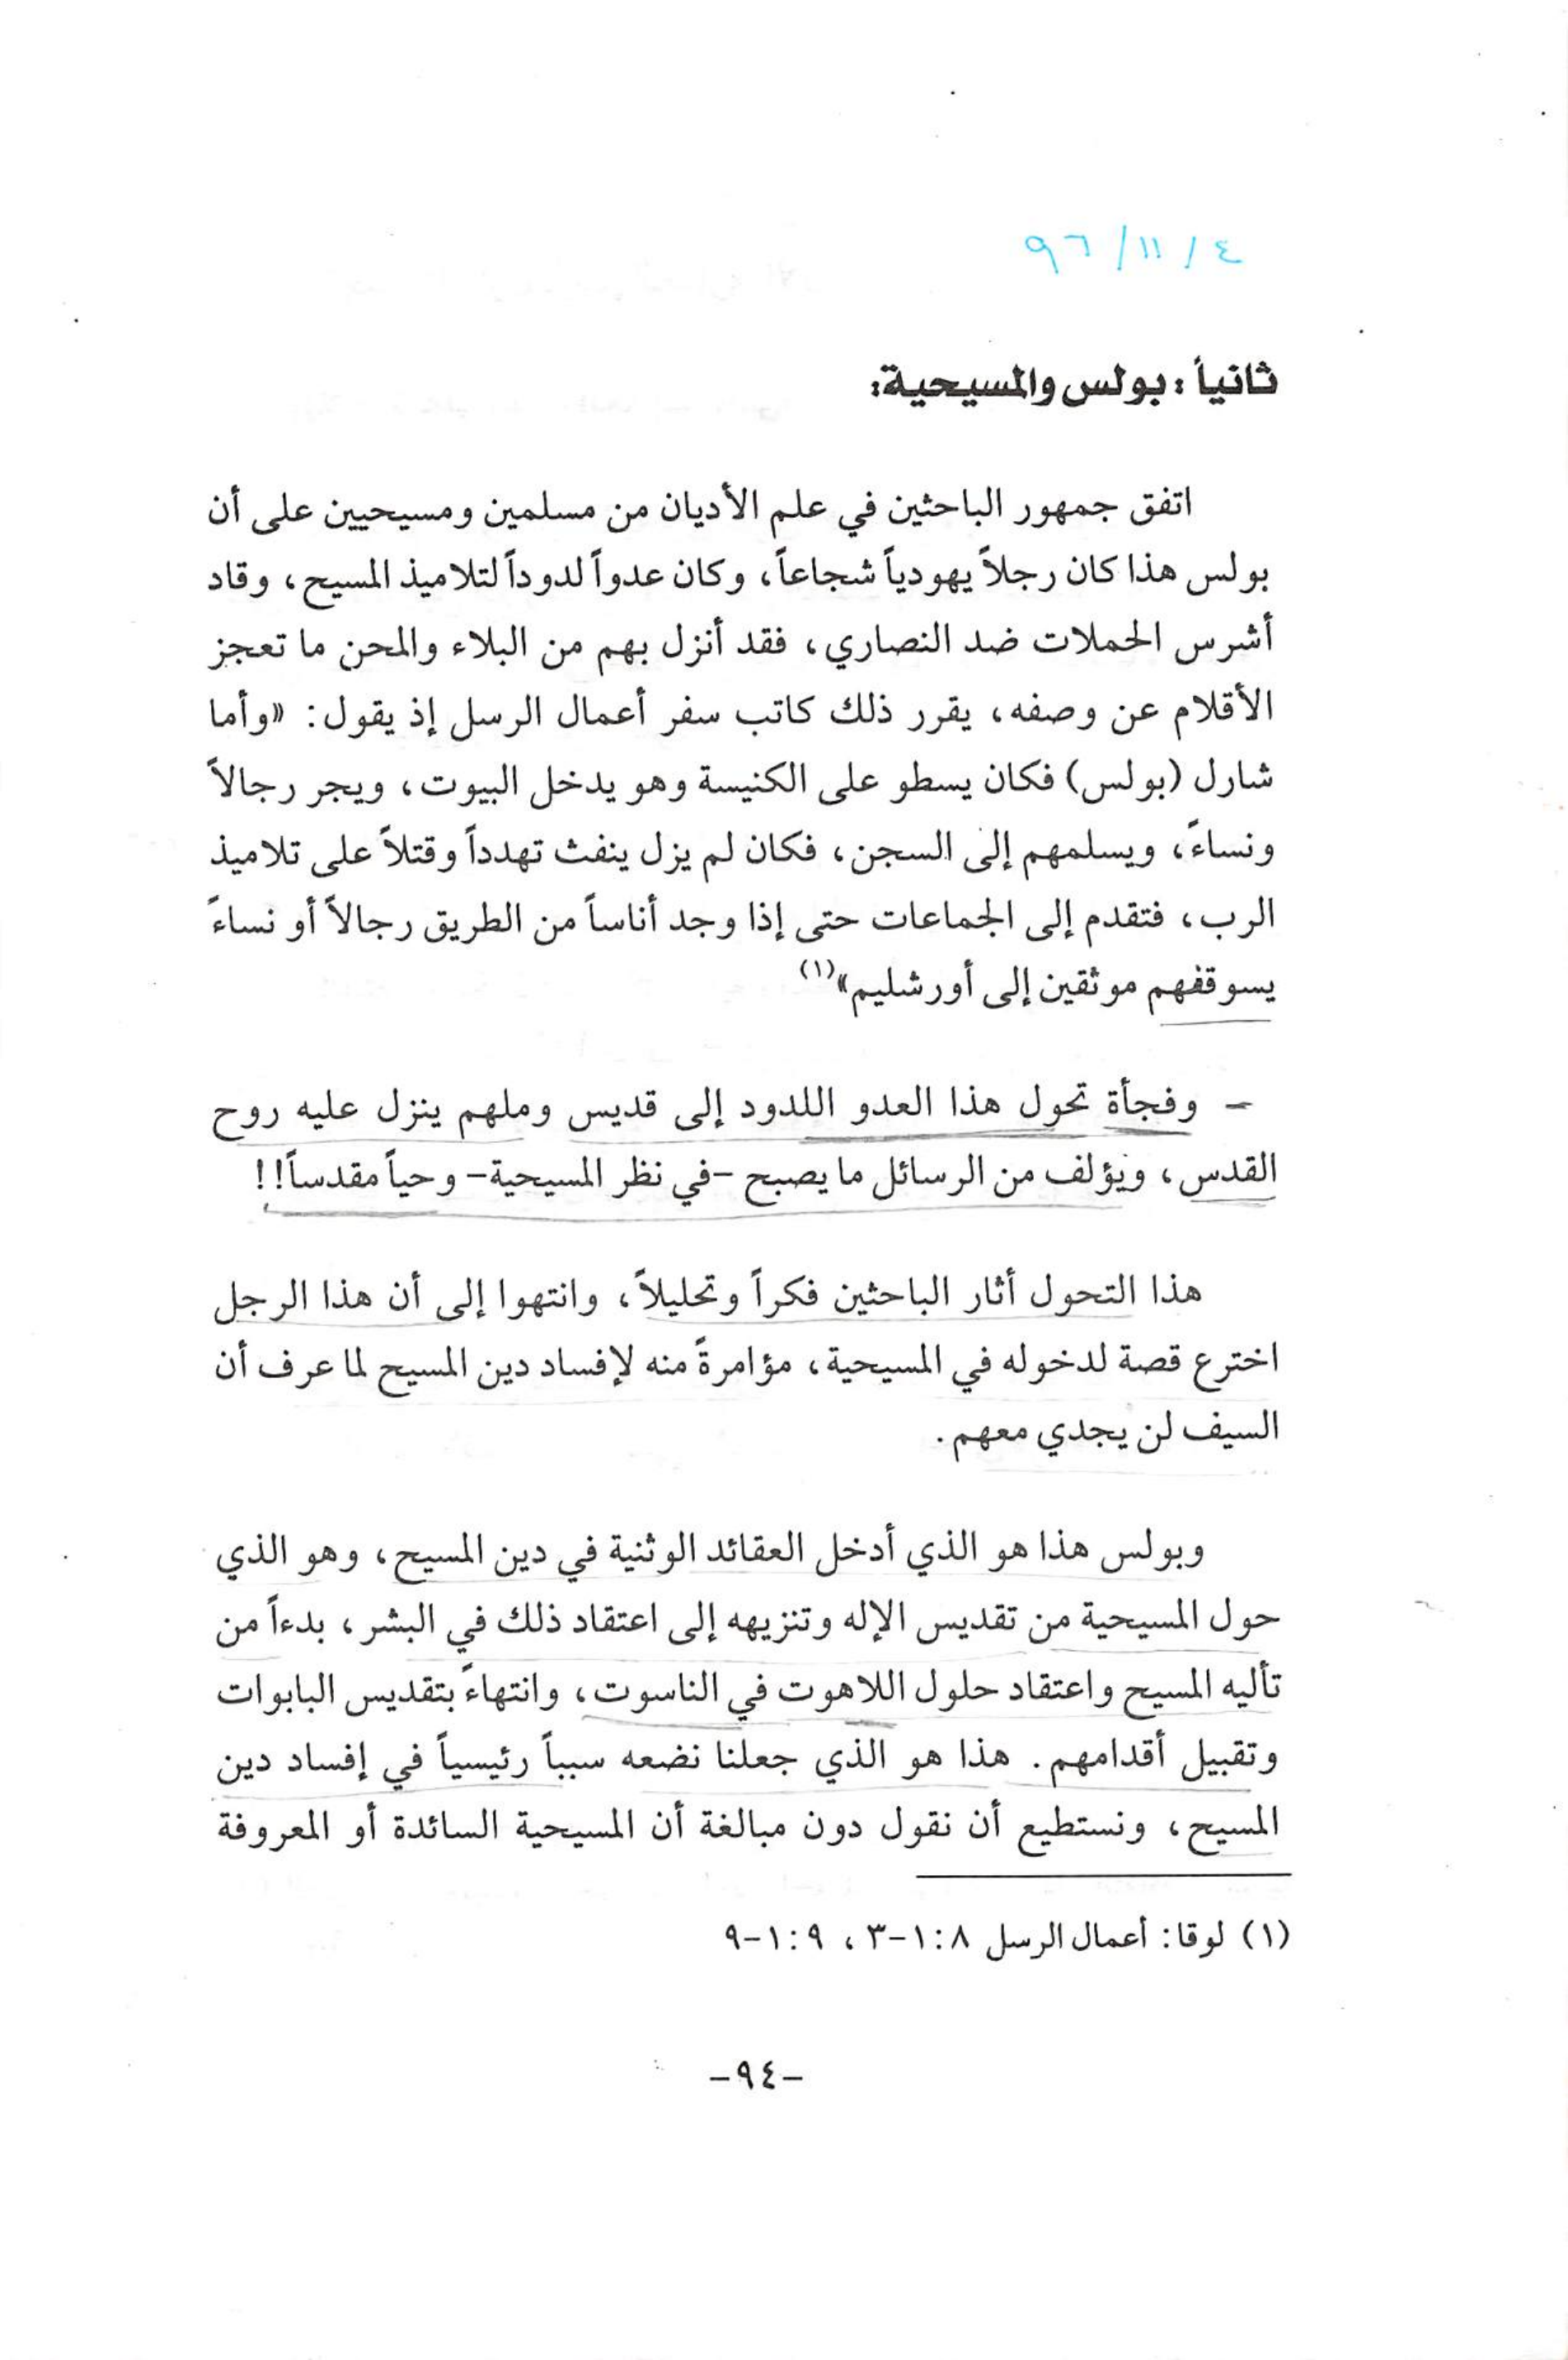 ٤/١١/٩٦
ثانياً : بولس والمسيحية:
اتفق جمهور الباحثين في علم الأديان من مسلمين ومسيحيين على أن
بولس هذا كان رجلاً يهودياً شجاعاً، وكان عدواً لدوداً لتلاميذ المسيح، وقاد
أشرس الحملات ضد النصاري، فقد أنزل بهم من البلاء والمحن ما تعجز
الأقلام عن وصفه، يقرر ذلك كاتب سفر أعمال الرسل إذ يقول: «وأما
شارل (بولس) فكان يسطو على الكنيسة وهو يدخل البيوت، ويجر رجالاً
ونساءً، ويسلمهم إلى السجن، فكان لم يزل ينفث تهدداً وقتلاً على تلاميذ
الرب، فتقدم إلى الجماعات حتى إذا وجد أناساً من الطريق رجالاً أو نساءً
يسوقفهم موثقين إلى أورشليم»(١)
- وفجأة تحول هذا العدو اللدود إلى قديس وملهم ينزل عليه روح
القدس، ويؤلف من الرسائل ما يصبح -في نظر المسيحية- وحياً مقدساً!!
هذا التحول أثار الباحثين فكراً وتحليلاً، وانتهوا إلى أن هذا الرجل
اخترع قصة لدخوله في المسيحية، مؤامرةً منه لإفساد دين المسيح لما عرف أن
السيف لن يجدي معهم.
وبولس هذا هو الذي أدخل العقائد الوثنية في دين المسيح، وهو الذي
حول المسيحية من تقديس الإله وتنزيهه إلى اعتقاد ذلك في البشر، بدءاً من
تأليه المسيح واعتقاد حلول اللاهوت في الناسوت، وانتهاءً بتقديس البابوات
وتقبيل أقدامهم. هذا هو الذي جعلنا نضعه سبباً رئيسياً في إفساد دين
المسيح، ونستطيع أن نقول دون مبالغة أن المسيحية السائدة أو المعروفة
(١) لوقا: أعمال الرسل ٨:١-٣، ٩:١-٩
-٩٤-